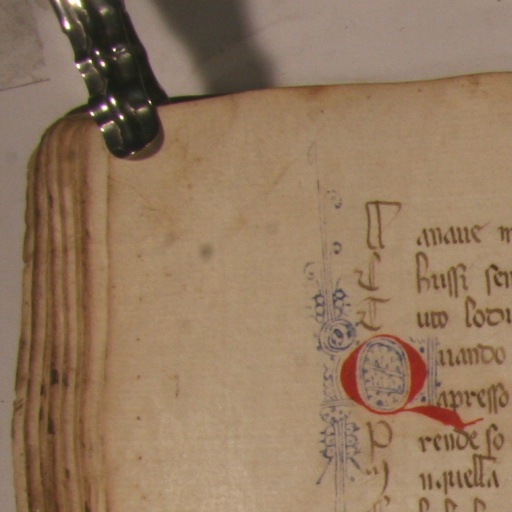 anaue
Chussi sen
Tuto lodu
Quando
apresso
Prende so
Inquella